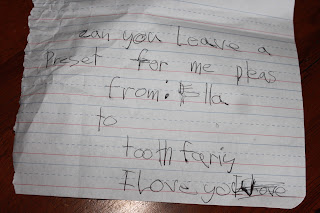 can you Leave a
preset for me pleas
from: Ella
to
tooth fariy
I Love you